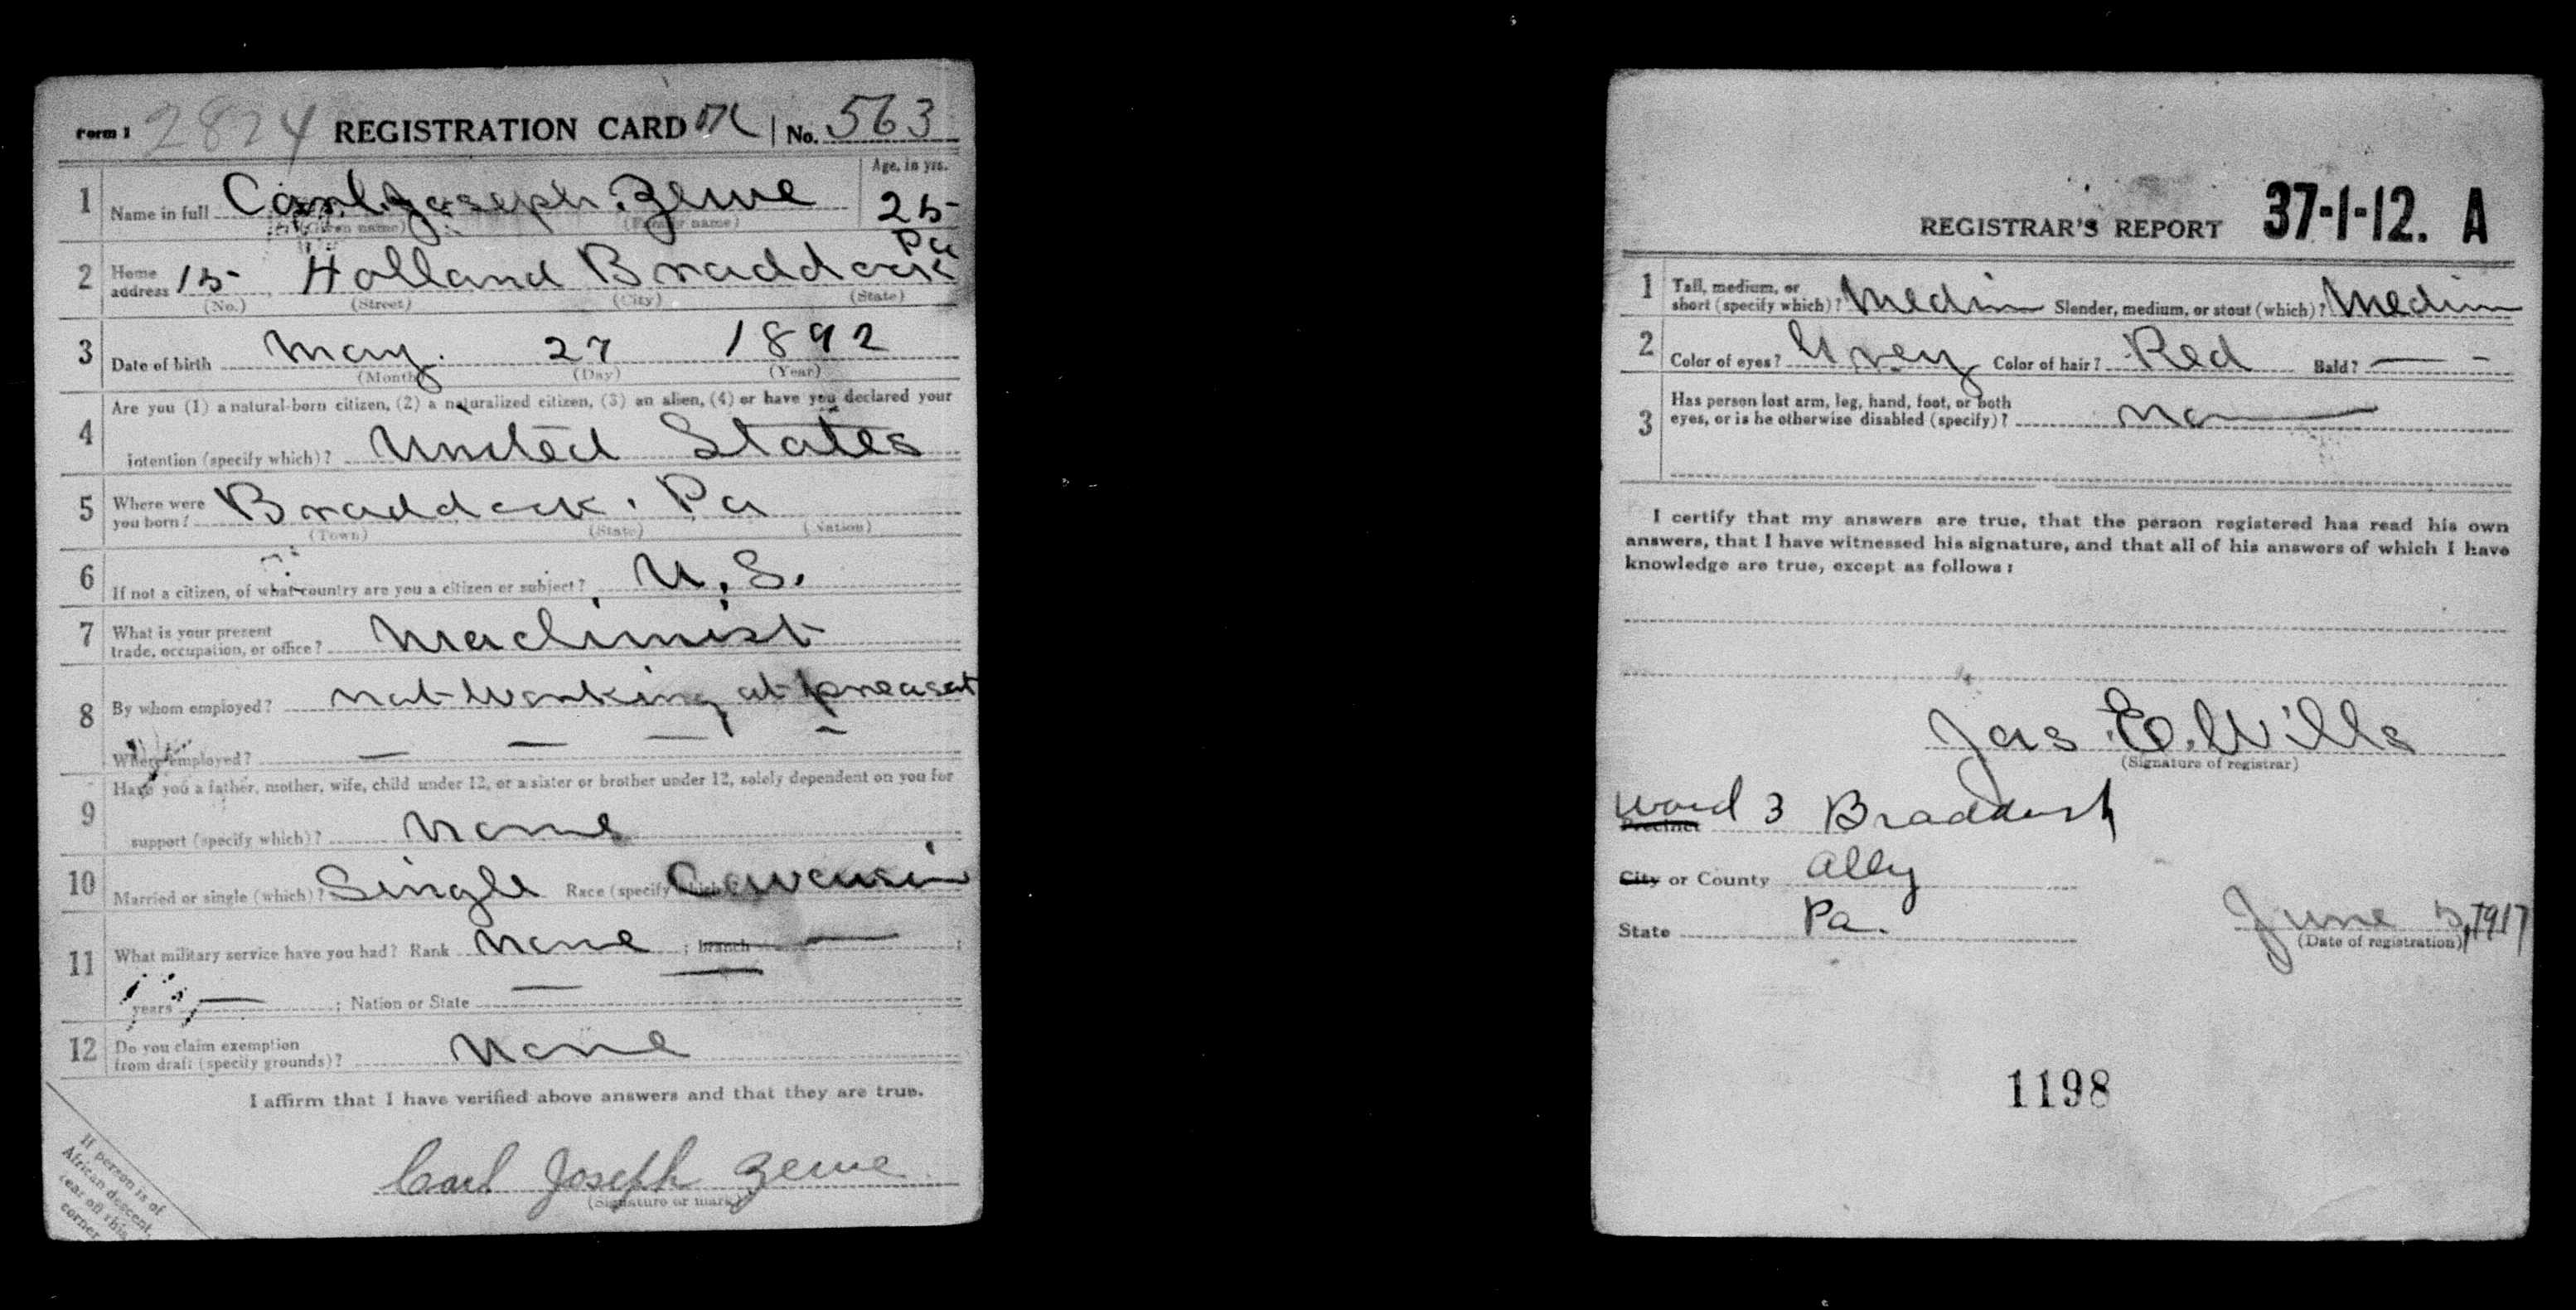 Form 1 2824 REGISTRATION CARD OK No. 563
Age, in yrs.
1 Name in full Carl Joseph Zewe 25
(Given name) (Family name)
Pa
2 Home address 15 Holland Braddock
(No.) (Street) (City) (State)
3 Date of birth May 27 1892
(Month) (Day) (Year)
Are you (1) a natural-born citizen, (2) a naturalized citizen, (3) an alien, (4) or have you declared your
4 intention (specify which)? United States
5 Where were you born? Braddock, Pa
(Town) (State) (Nation)
6 If not a citizen, of what country are you a citizen or subject? U.S.
7 What is your present
trade, occupation, or office? Machinist
8 By whom employed? not working at preasent
Where employed? — — — —
Have you a father, mother, wife, child under 12, or a sister or brother under 12, solely dependent on you for
9 support (specify which)? None
10 Married or single (which)? Single Race (specify which)? Cawcusin
11 What military service have you had? Rank None ; branch — ;
years — ; Nation or State —
12 Do you claim exemption
from draft (specify grounds)? None
I affirm that I have verified above answers and that they are true.
Carl Joseph Zewe
(Signature or mark)
If person is of
African descent,
tear off this
corner
REGISTRAR'S REPORT 37-1-12. A
1 Tall, medium, or
short (specify which)? Medium Slender, medium, or stout (which)? Medium
2 Color of eyes? Grey Color of hair? Red Bald? — -
3 Has person lost arm, leg, hand, foot, or both
eyes, or is he otherwise disabled (specify)? no
I certify that my answers are true, that the person registered has read his own
answers, that I have witnessed his signature, and that all of his answers of which I have
knowledge are true, except as follows:
Jas. E. Wills
(Signature of registrar)
Ward 3 Braddock
Precinct
City or County Ally
State Pa. June 5, 1917
(Date of registration)
1198